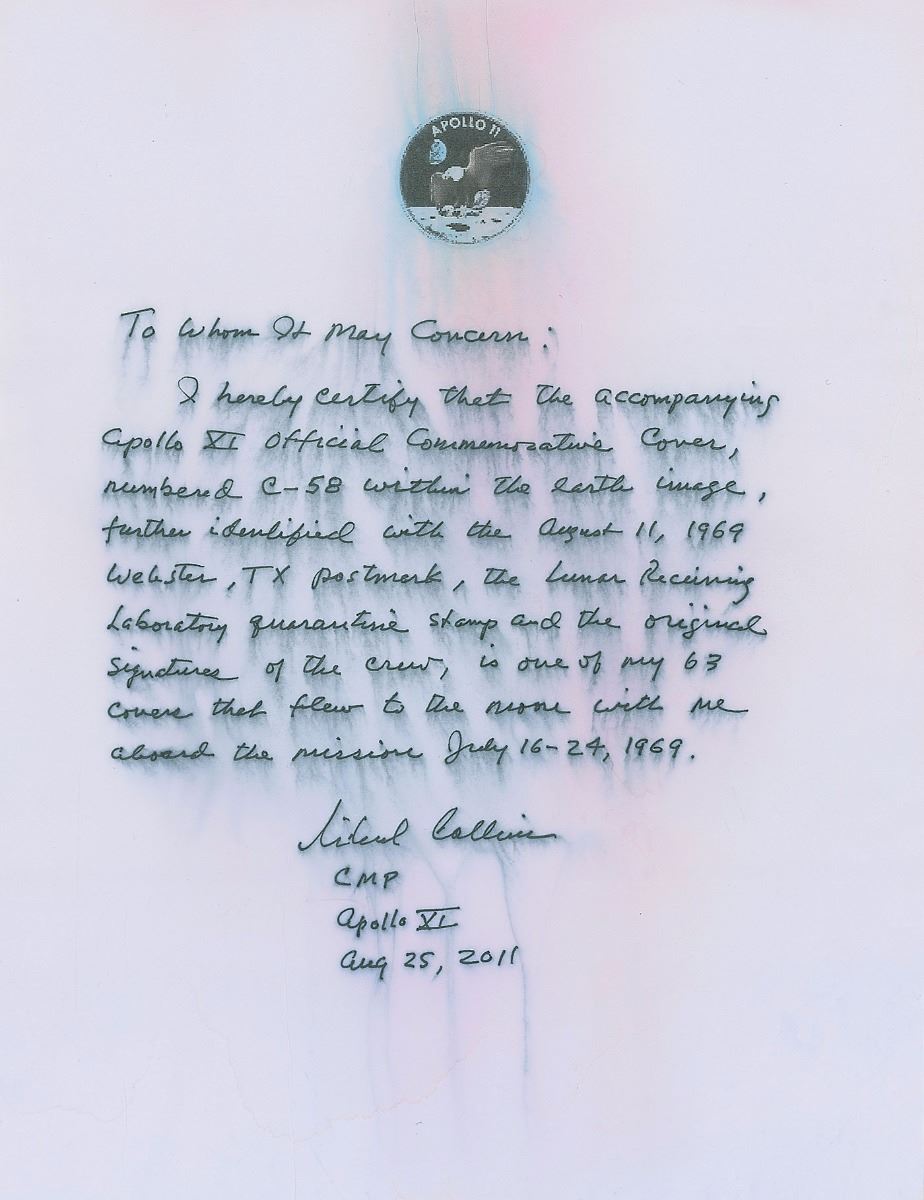 APOLLO 11
To Whom It May Concern:
I hereby certify that the accompanying
Apollo XI Official Commemorative Cover,
numbered C-58 within the earth image,
further identified with the August 11, 1969
Webster, TX postmark, the Lunar Receiving
Laboratory quarantine stamp and the original
signatures of the crew, is one of my 63
covers that flew to the moon with me
aboard the mission July 16-24, 1969.
Michael Collins
CMP
Apollo XI
Aug 25, 2011